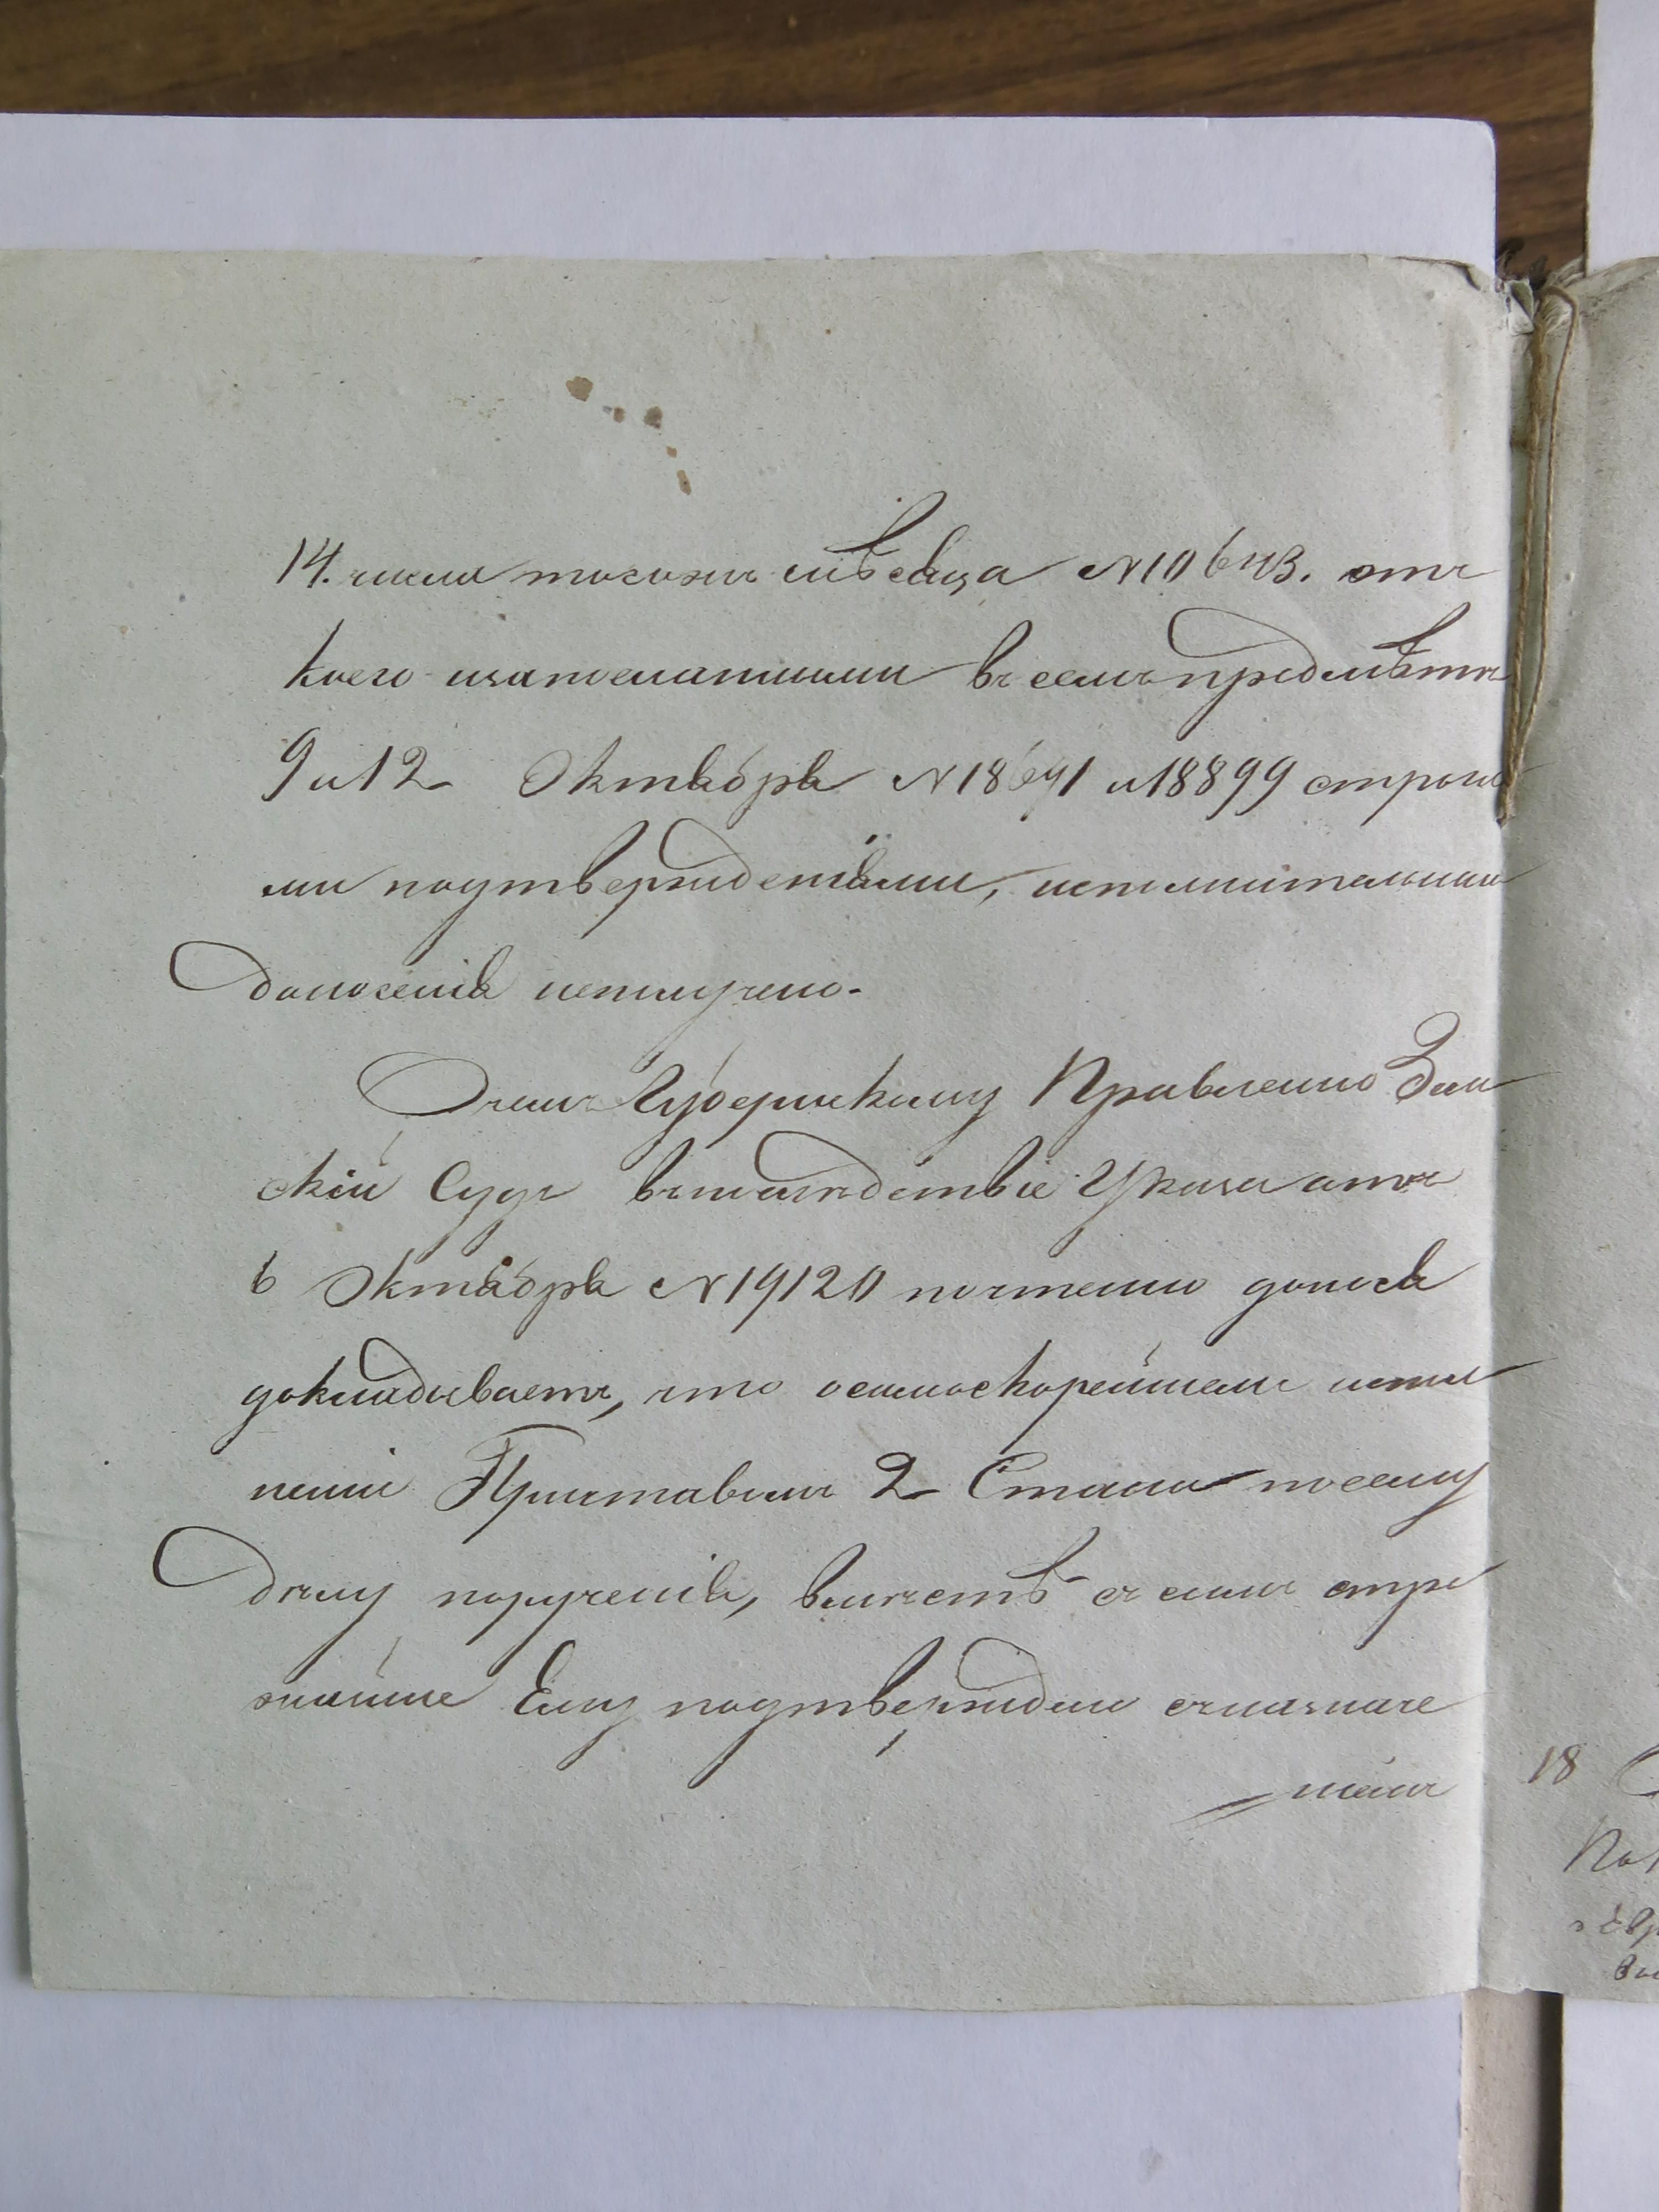 14. числа тогожъ мѣсяца №10643. отъ
коего изапосланными въ семъ предмѣтѣ
9 и 12 Октября №18641 и 18899 строги
ми подтвержденіями, исполнительнаго
донесенія неполучено.
Очемъ Губернскому Правленію Зем
скій Судъ въпослѣдствіе Указа отъ
6 Октября №19120 почтенно донося
докладываетъ, что осамоскорейшемъ испол
неніи Приставомъ 2 Стана посему
дѣлу порученія, вмѣстѣ съ симъ стро
жайше Ему подтверждено съназначе
ніемъ
18